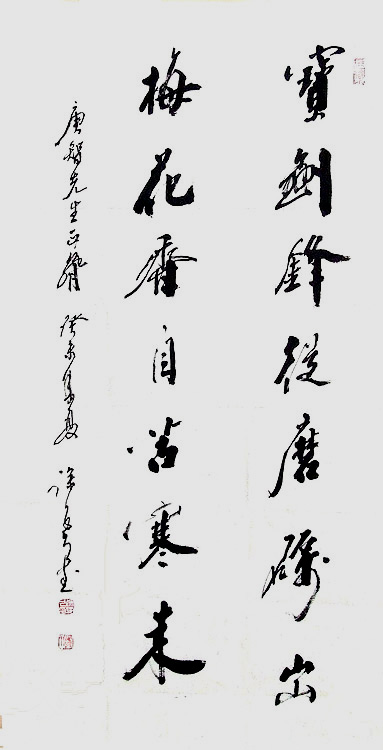 寶劍鋒從磨礪出
梅花香自苦寒來
先生正腕
癸未年夏